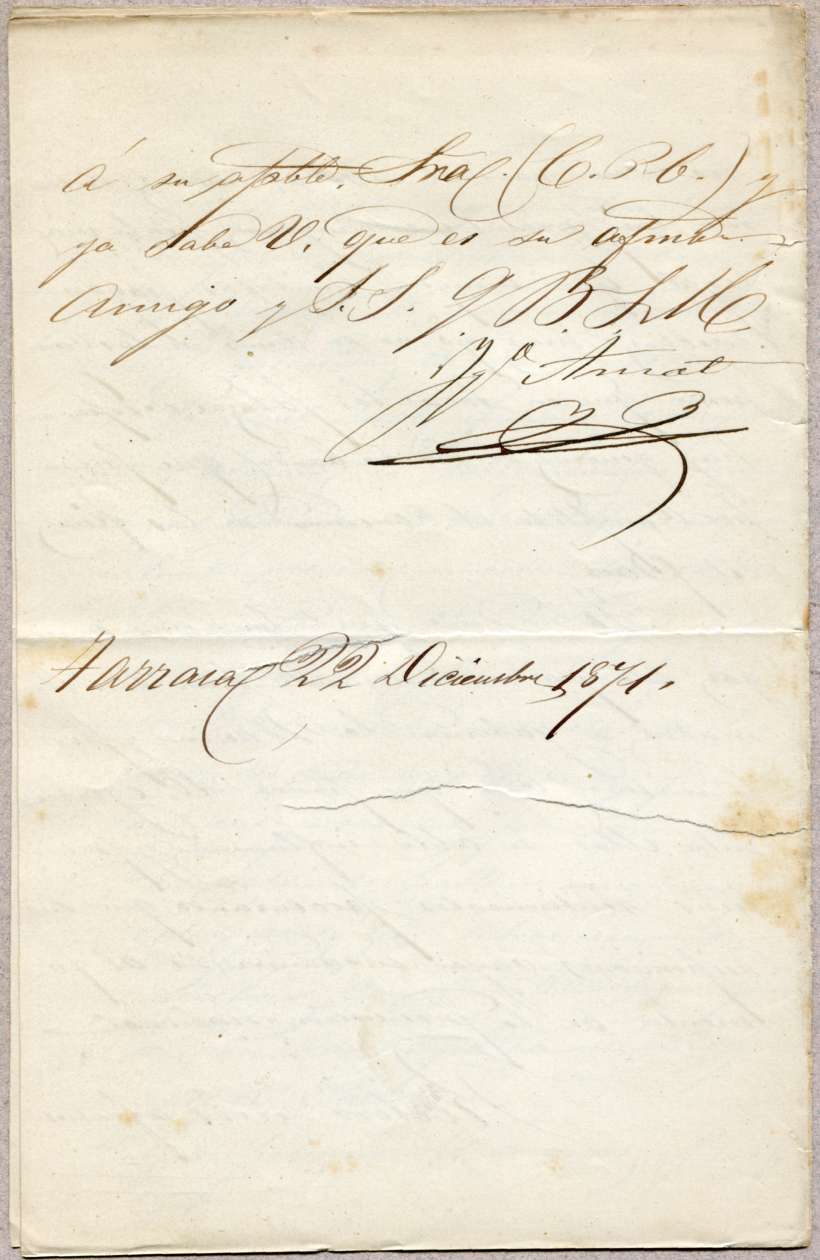 á su apble. Sra. (C. P. B.) y
ya sabe V. que es su afmo.
Amigo y S. S. q B S M
Ygo. Amat
Tarrasa 22 Diciembre 1871.